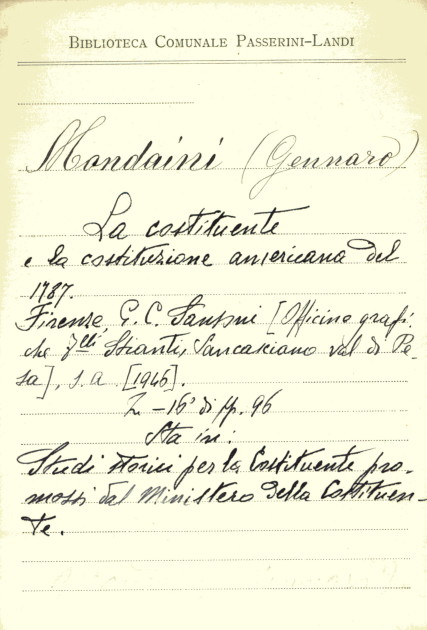 BIBLIOTECA COMUNALE PASSERINI-LANDI
Mondaini (Gennaro)
La costituente
e la costituzione americana del
1787.
Firenze, G. C. Sansoni [Officina grafi-
che F.lli Stianti, Sancasciano val di Pe-
sa], s.a. [1946].
in-16° di pp. 96
Sta in:
Studi storici per la Costituente pro-
mossi dal Ministero della Costituen-
te.